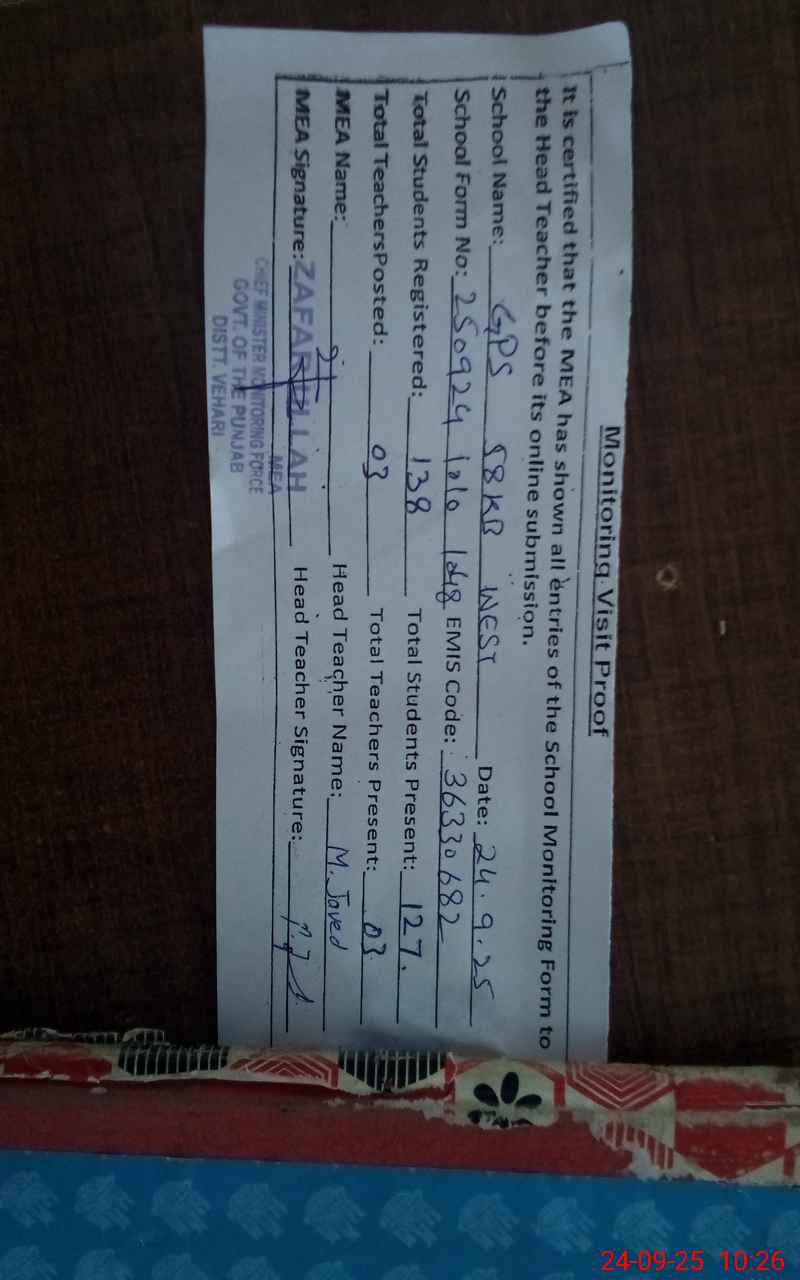 Monitoring Visit Proof
It is certified that the MEA has shown all entries of the School Monitoring Form to
the Head Teacher before its online submission.
School Name: GPS 58KB WEST Date: 24.9.25
School Form No: 250924 1010 EMIS Code: 36330682
Total Students Registered: 138 Total Students Present: 127.
Total TeachersPosted: 03 Total Teachers Present: 03
MEA Name: Head Teacher Name: M. Javed
MEA Signature: ZAFARULLAH Head Teacher Signature:
MEA
CHIEF MINISTER MONITORING FORCE
GOVT. OF THE PUNJAB
DISTT. VEHARI
24-09-25 10:26